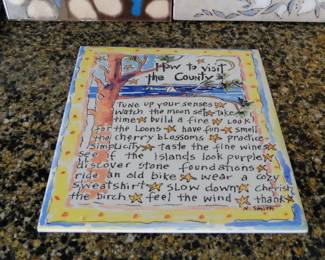 How to visit
the County
Tune up your senses
Watch the moon set take
time build a fire Look
for the Loons have fun smell
the cherry blossoms practice
simplicity taste the fine wines
see if the Islands look purple
discover stone foundations
ride an old bike wear a cozy
sweatshirt slow down Cherish
the birch feel the wind thank
N. Smith